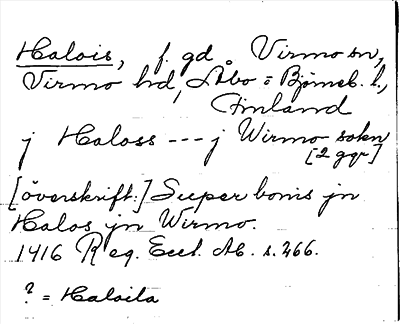 Halois, f. gd. Virmo sn,
Virmo hd, Åbo = Björneb. l.,
Finland
j Haloss --- j Wirmo sokn
[2 ggr]
[överskrift:] Super bonis jn
Halos jn Wirmo.
1416 Reg. Eccl. Ab. s. 266.
? = Haloila